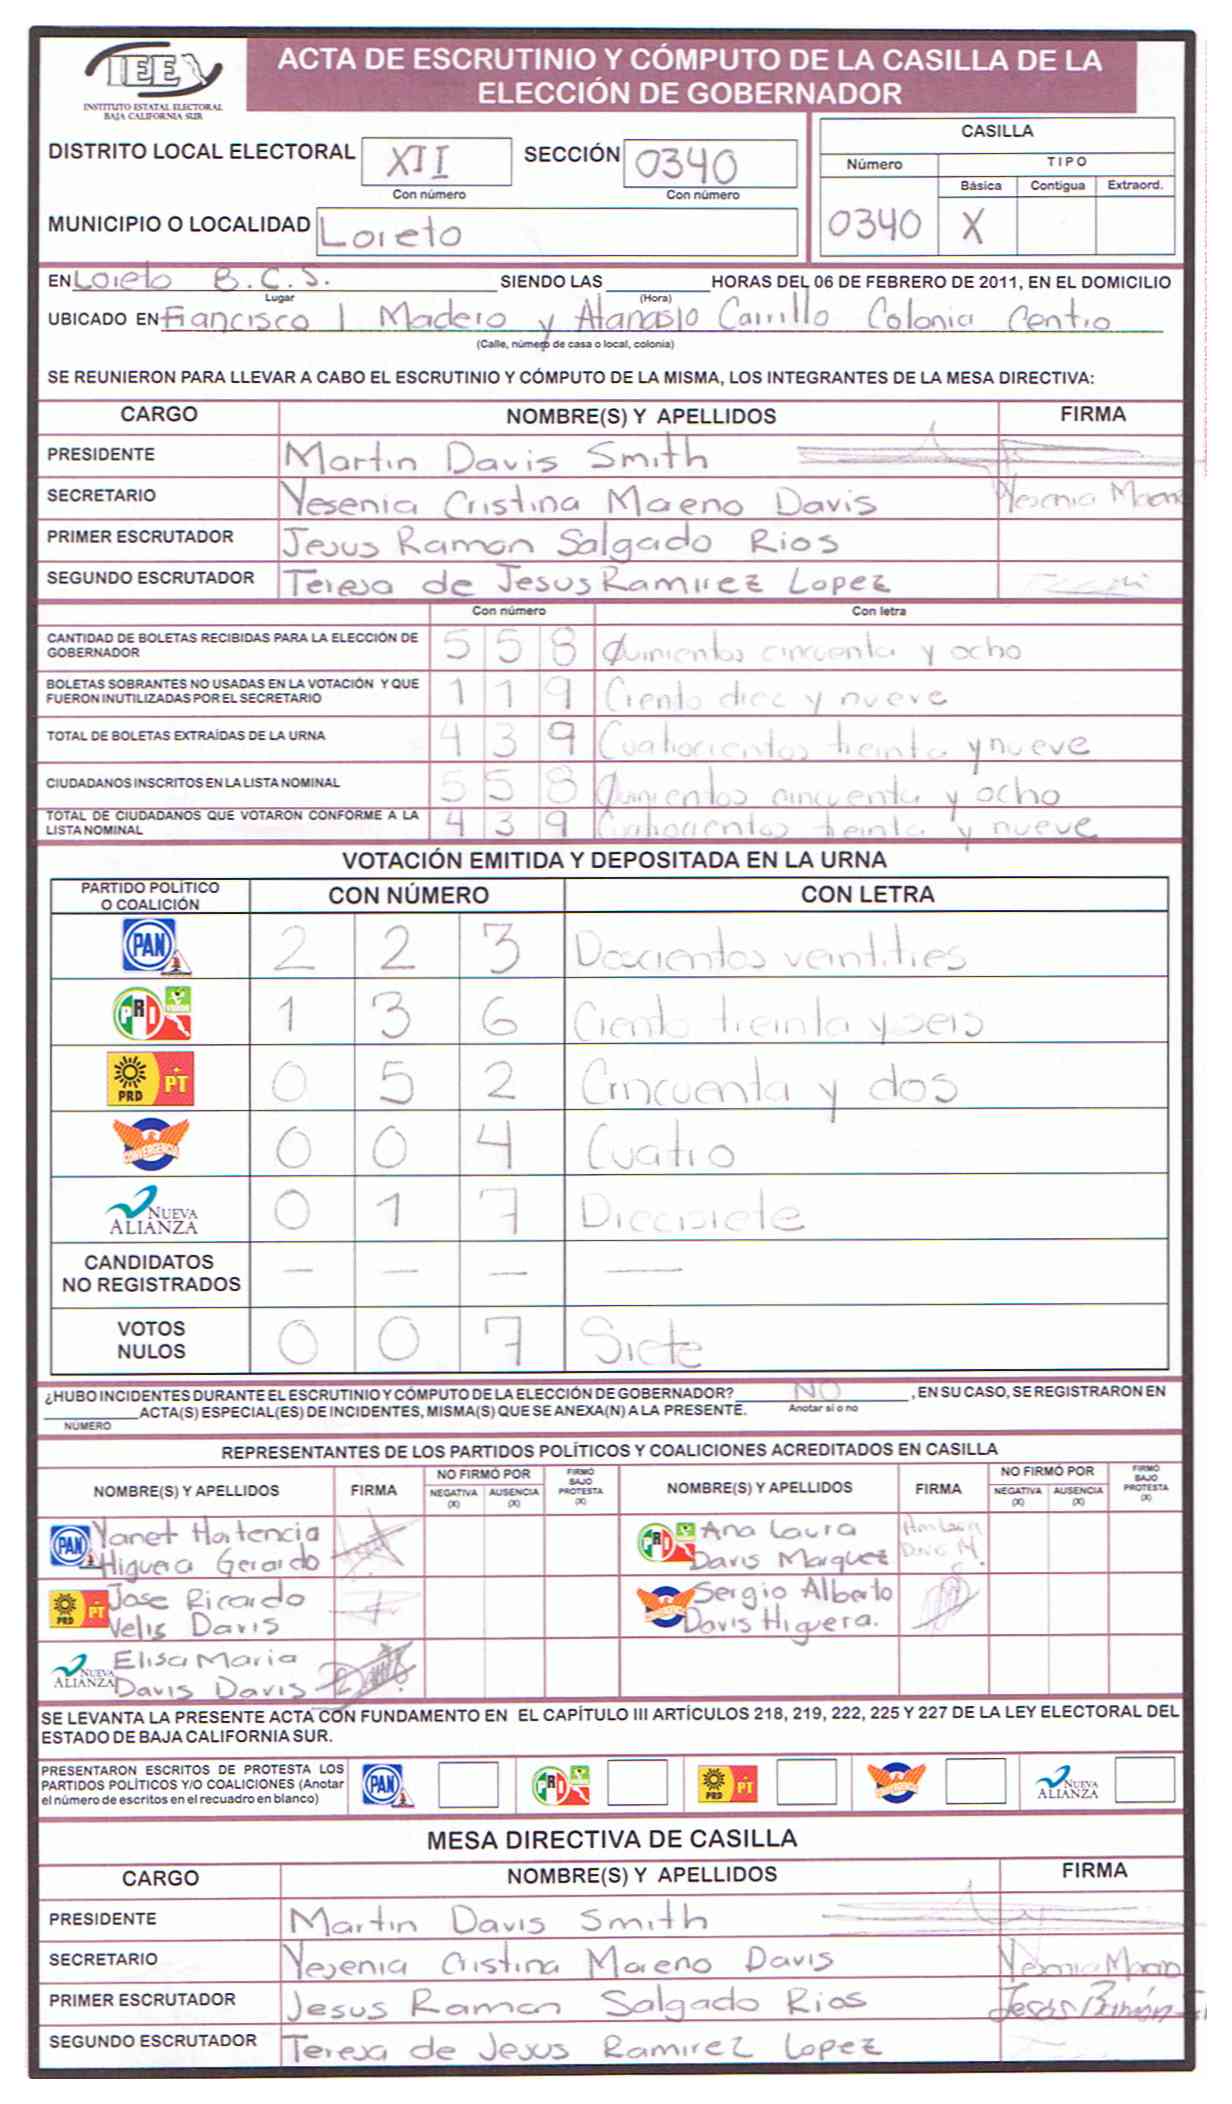 IEE
INSTITUTO ESTATAL ELECTORAL
BAJA CALIFORNIA SUR
ACTA DE ESCRUTINIO Y CÓMPUTO DE LA CASILLA DE LA
ELECCIÓN DE GOBERNADOR
DISTRITO LOCAL ELECTORAL XII SECCIÓN 0340
Con número Con número
MUNICIPIO O LOCALIDAD Loreto
CASILLA
Número TIPO
Básica Contigua Extraord.
0340 X
EN Loreto B.C.S. SIENDO LAS HORAS DEL 06 DE FEBRERO DE 2011, EN EL DOMICILIO
Lugar (Hora)
UBICADO EN Francisco I Madero y Atanasio Carrillo Colonia Centro
(Calle, número de casa o local, colonia)
SE REUNIERON PARA LLEVAR A CABO EL ESCRUTINIO Y CÓMPUTO DE LA MISMA, LOS INTEGRANTES DE LA MESA DIRECTIVA:
CARGO NOMBRE(S) Y APELLIDOS FIRMA
PRESIDENTE Martin Davis Smith
SECRETARIO Yesenia Cristina Moreno Davis Yesenia Moreno
PRIMER ESCRUTADOR Jesus Ramon Salgado Rios
SEGUNDO ESCRUTADOR Teresa de Jesus Ramirez Lopez
Con número Con letra
CANTIDAD DE BOLETAS RECIBIDAS PARA LA ELECCIÓN DE
GOBERNADOR 5 5 8 Quinientos cincuenta y ocho
BOLETAS SOBRANTES NO USADAS EN LA VOTACIÓN Y QUE
FUERON INUTILIZADAS POR EL SECRETARIO 1 1 9 Ciento diez y nueve
TOTAL DE BOLETAS EXTRAÍDAS DE LA URNA 4 3 9 Cuatrocientos treinta y nueve
CIUDADANOS INSCRITOS EN LA LISTA NOMINAL 5 5 8 Quinientos cincuenta y ocho
TOTAL DE CIUDADANOS QUE VOTARON CONFORME A LA
LISTA NOMINAL 4 3 9 Cuatrocientos treinta y nueve
VOTACIÓN EMITIDA Y DEPOSITADA EN LA URNA
PARTIDO POLÍTICO
O COALICIÓN CON NÚMERO CON LETRA
PAN 2 2 3 Doscientos veintitres
PRI VERDE 1 3 6 Ciento treinta y seis
PRD PT 0 5 2 Cincuenta y dos
CONVERGENCIA 0 0 4 Cuatro
NUEVA
ALIANZA 0 1 7 Diecisiete
CANDIDATOS
NO REGISTRADOS — — — —
VOTOS
NULOS 0 0 7 Siete
¿HUBO INCIDENTES DURANTE EL ESCRUTINIO Y CÓMPUTO DE LA ELECCIÓN DE GOBERNADOR? NO , EN SU CASO, SE REGISTRARON EN
ACTA(S) ESPECIAL(ES) DE INCIDENTES, MISMA(S) QUE SE ANEXA(N) A LA PRESENTE. Anotar sí o no
NÚMERO
REPRESENTANTES DE LOS PARTIDOS POLÍTICOS Y COALICIONES ACREDITADOS EN CASILLA
NOMBRE(S) Y APELLIDOS FIRMA NO FIRMÓ POR NEGATIVA (X) AUSENCIA (X) FIRMÓ BAJO PROTESTA (X) NOMBRE(S) Y APELLIDOS FIRMA NO FIRMÓ POR NEGATIVA (X) AUSENCIA (X) FIRMÓ BAJO PROTESTA (X)
PAN Yanet Hortencia
Higuera Gerardo
PRI Ana Laura
Davis Marquez
Ana Laura
Davis M.
PRD PT Jose Ricardo
Velis Davis
CONVERGENCIA Sergio Alberto
Davis Higuera.
NUEVA ALIANZA Elisa Maria
Davis Davis
SE LEVANTA LA PRESENTE ACTA CON FUNDAMENTO EN EL CAPÍTULO III ARTÍCULOS 218, 219, 222, 225 Y 227 DE LA LEY ELECTORAL DEL
ESTADO DE BAJA CALIFORNIA SUR.
PRESENTARON ESCRITOS DE PROTESTA LOS
PARTIDOS POLÍTICOS Y/O COALICIONES (Anotar
el número de escritos en el recuadro en blanco)
PAN PRI PRD PT CONVERGENCIA NUEVA ALIANZA
MESA DIRECTIVA DE CASILLA
CARGO NOMBRE(S) Y APELLIDOS FIRMA
PRESIDENTE Martin Davis Smith
SECRETARIO Yesenia Cristina Moreno Davis Yesenia Moreno
PRIMER ESCRUTADOR Jesus Ramon Salgado Rios Jesús Ramón
SEGUNDO ESCRUTADOR Teresa de Jesus Ramirez Lopez